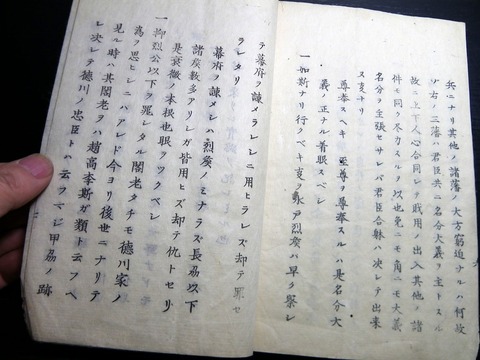 兵ニナリ其他ノ諸藩ノ大方窮迫ナルハ何故
ゾ右ノ三藩ハ君臣共ニ名分大義ヲ主トスル
故ニ上下人心合同シ財用ノ出入其他ノ諸
件モ同ク尽力スルヲ以也兎ニモ角ニモ大義
名分ヲ主張セサレバ君臣合躰ハ決シテ出来
ス事ナリ
尊奉スヘキ至尊ヲ尊奉スルハ是名分大
義ノ正ナル首眼スベシ
一如斯ナリ行クベキ事ヲ水戸烈廣ハ早ク察シ
テ幕府ヲ諌メラレシニ用ヒラレズ却テ罪セ
ラレタリ
幕府ヲ諌メシハ烈廣ノミナラス長劦以下
諸矦数多アリシガ皆用ヒズ却テ仇トセリ
是衰微ノ本根也眼ヲツクベシ
一抑烈公以下ヲ罪シタル閣老タチモ徳川家ノ
為ヲ思ヒシニハアレド今ヨリ後世ニナリテ
見ル時ハ其閣老ヲハ趙高李斯ガ類ト云フヘ
シ决シテ徳川ノ忠臣トハ云フベシ甲劦ノ跡